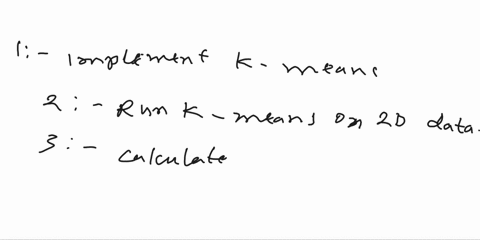 1:- Implement K-means
2:- Run K-means on 2D data.
3:- Calculate